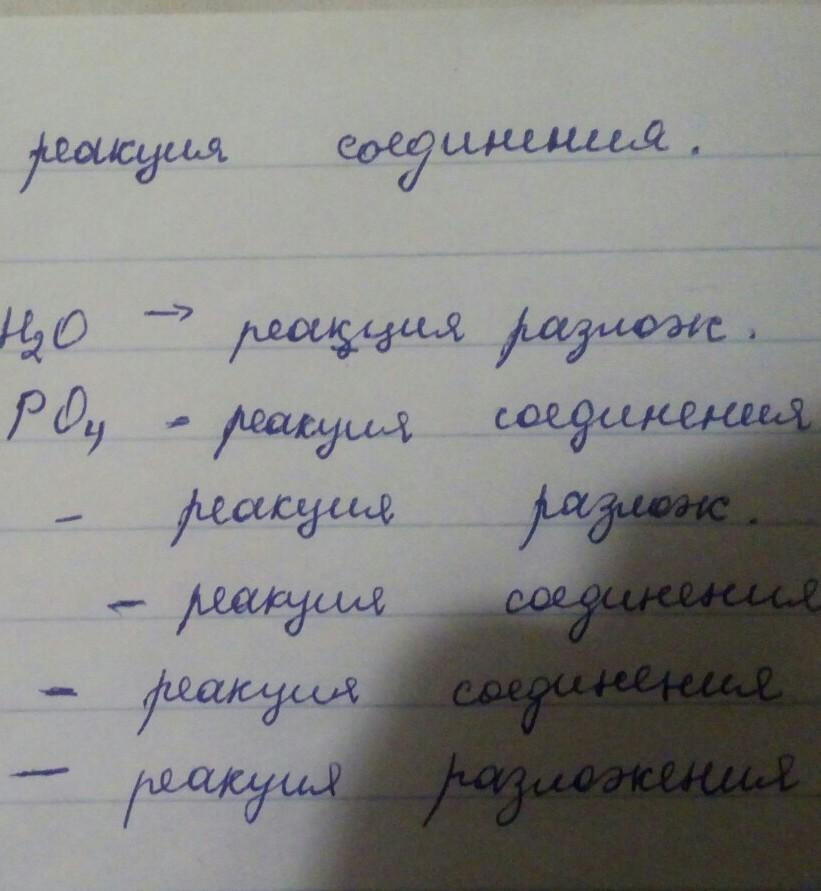 реакция соединения.
H₂O → реакция разлож.
PO₄ - реакция соединения
- реакция разлож.
- реакция соединения
- реакция соединения
- реакция разложения